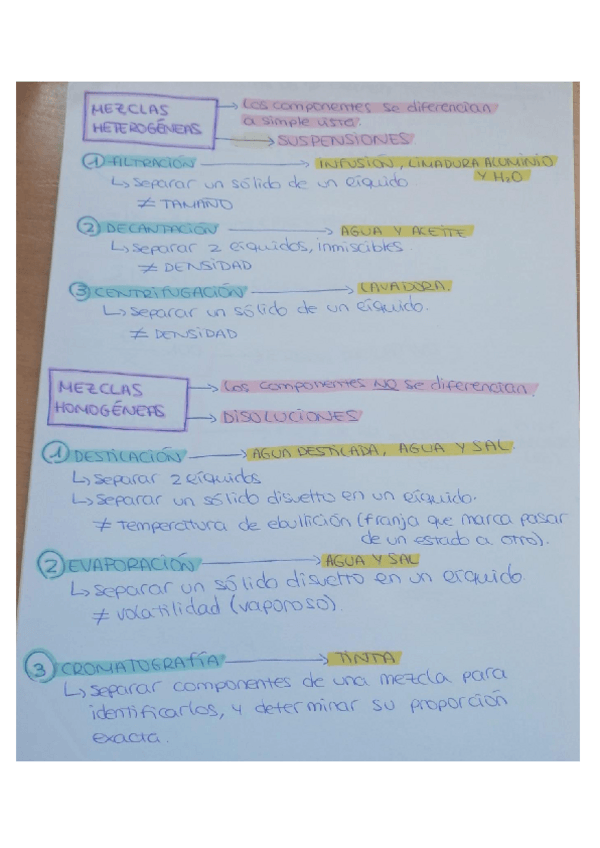 MEZCLAS HETEROGÉNEAS → Los componentes se diferencian
a simple vista.
→ SUSPENSIONES
① FILTRACIÓN → INFUSIÓN, LIMADURA ALUMINIO
Y H2O
↳ Separar un sólido de un líquido.
≠ TAMAÑO
② DECANTACIÓN → AGUA Y ACEITE
↳ Separar 2 líquidos, inmiscibles.
≠ DENSIDAD
③ CENTRIFUGACIÓN → LAVADORA.
↳ Separar un sólido de un líquido.
≠ DENSIDAD
MEZCLAS HOMOGÉNEAS → Los componentes NO se diferencian.
→ DISOLUCIONES
① DESTILACIÓN → AGUA DESTILADA, AGUA Y SAL.
↳ Separar 2 líquidos
↳ Separar un sólido disuelto en un líquido.
≠ temperatura de ebullición (franja que marca pasar
de un estado a otro).
② EVAPORACIÓN → AGUA Y SAL
↳ Separar un sólido disuelto en un líquido
≠ volatilidad (vaporoso).
③ CROMATOGRAFÍA → TINTA
↳ Separar componentes de una mezcla para
identificarlos, y determinar su proporción
exacta.